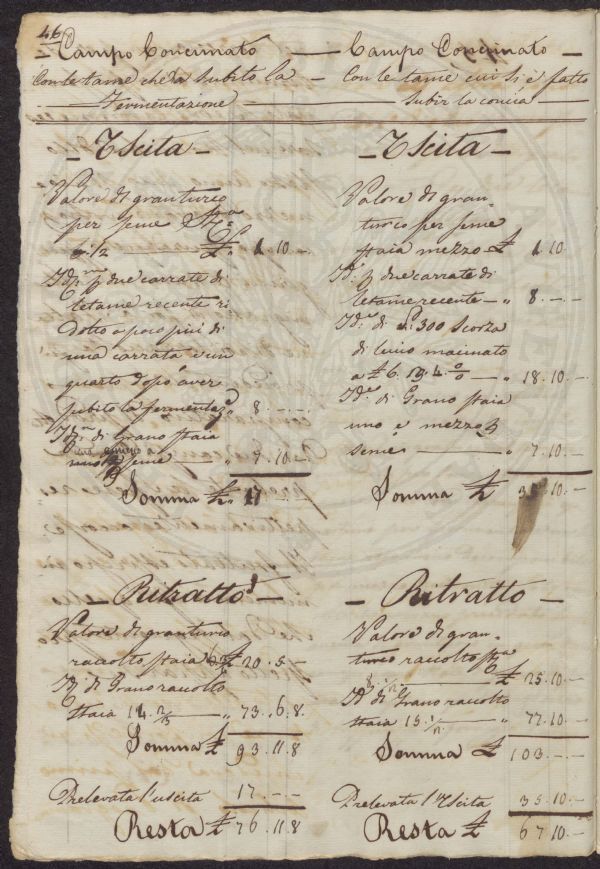 46
Campo Concimato
Con letame che à subito la
Fermentazione
Uscita
Valore di granturco
per seme St.a
½ £ 1.10.—
Id.m p due carrate di
letame recente ri
dotto a poco più di
una carrata e un
quarto dopo aver
subito la fermentaz.e " 8.—.—
Id.m di Grano staia
uno e mezzo p seme " 7.10.—
Somma £ 17.—.—
Ritratto
Valore di granturco
raccolto staia £ 20.5.—
Id. di Grano raccolto
staia 14.⅔ " 73.6.8
Somma £ 93.11.8
Prelevata l'uscita 17.—.—
Resta £ 76.11.8
Campo Concimato
Con letame cui si è fatto
subir la concia
Uscita
Valore di gran-
turco per seme
staia mezzo £ 1.10.
Id. p due carrate di
letame recente — " 8.—
Id. di 300 Scorza
di leccio macinato
a £ 6.13.4 % — " 18.10.—
Id. di Grano staia
uno e mezzo p
seme — " 7.10.—
Somma £ 35.10.—
Ritratto
Valore di gran-
turco raccolto sta
8.½ £ 25.10.—
Id. di Grano raccolto
staia 15.½ " 77.10.—
Somma £ 103.—.—
Prelevata l'Uscita 35.10.—
Resta £ 67.10.—